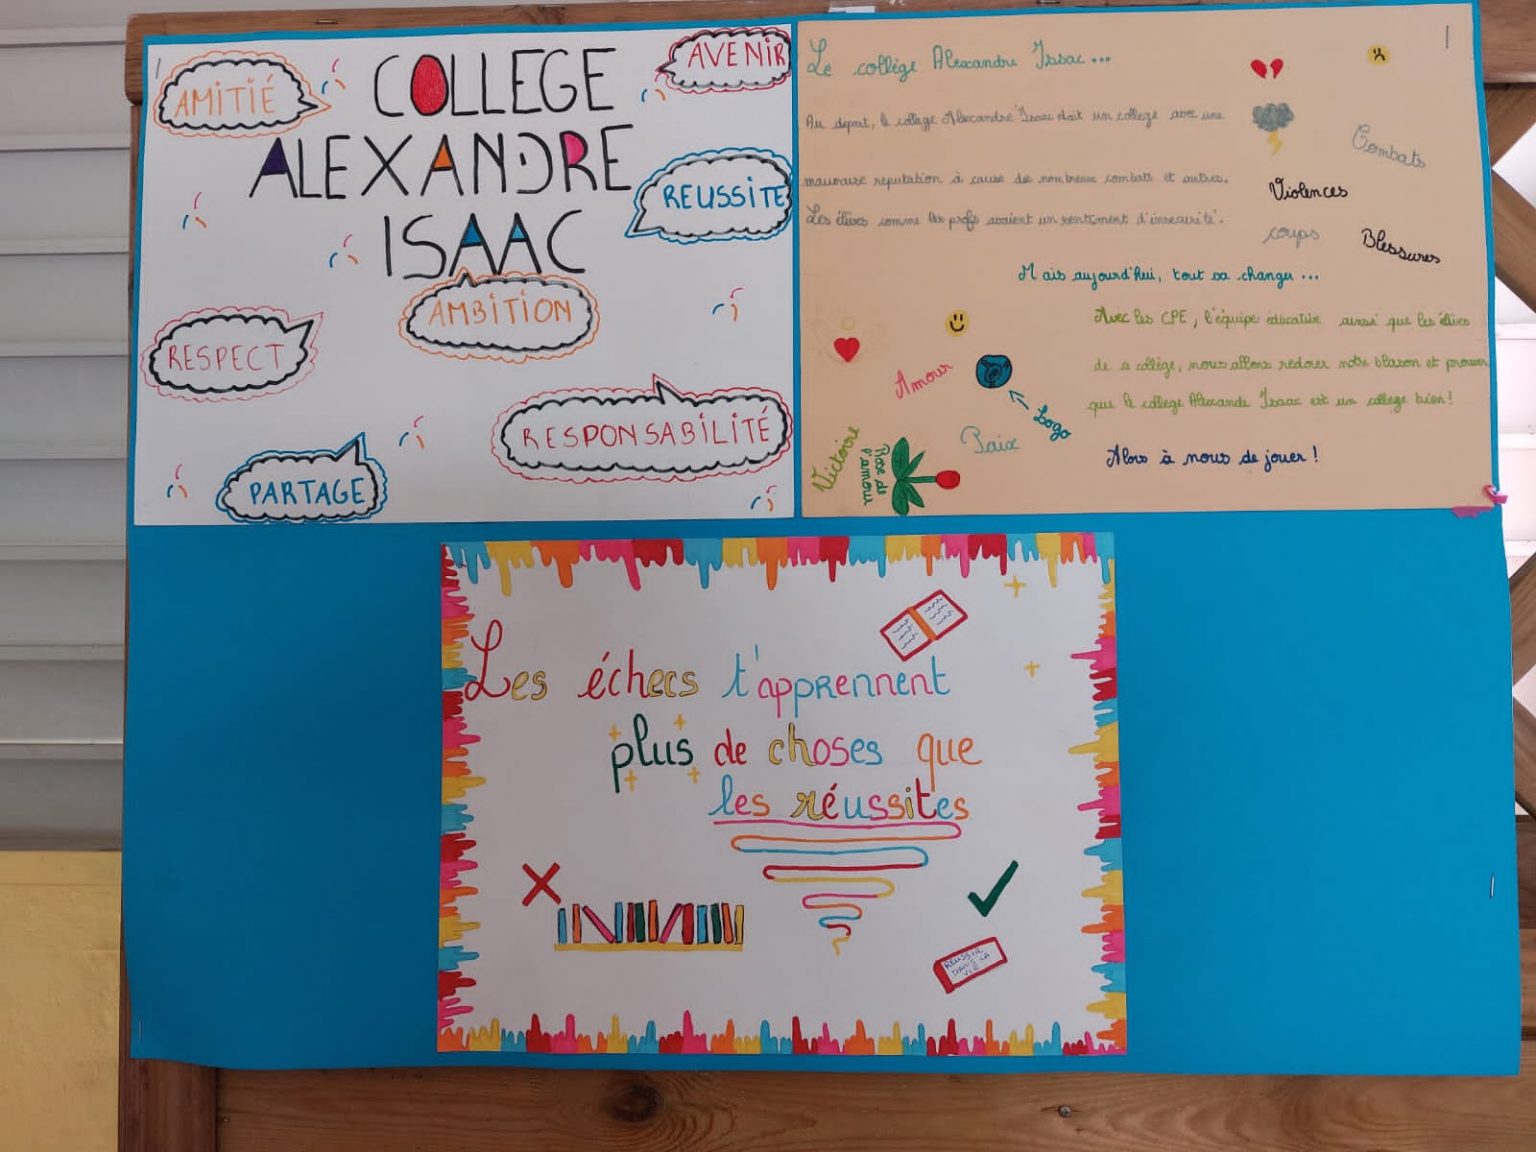 COLLEGE
ALEXANDRE
ISAAC
AMITIÉ
AVENIR
REUSSITE
AMBITION
RESPECT
RESPONSABILITÉ
PARTAGE
Le collège Alexandre Issac...
Au depart, le college Alexandre Isaac était un college avec une
mauvaise reputation à cause des nombreux combats et autres.
Les élèves comme les profs avaient un sentiment d'insecurité.
Combats
Violences
coups
Blessures
Mais aujourd'hui, tout sa changer...
Avec les CPE, l'équipe éducative ainsi que les élèves
de ce collège, nous allons redorer notre blason et prouver
que le college Alexandre Isaac est un college bien!
Alors à nous de jouer!
Amour
Logo
Paix
Victoire
Rose de
l'amour
Les échecs t'apprennent
plus de choses que
les réussites
REUSSIR
DANS LA
VIE